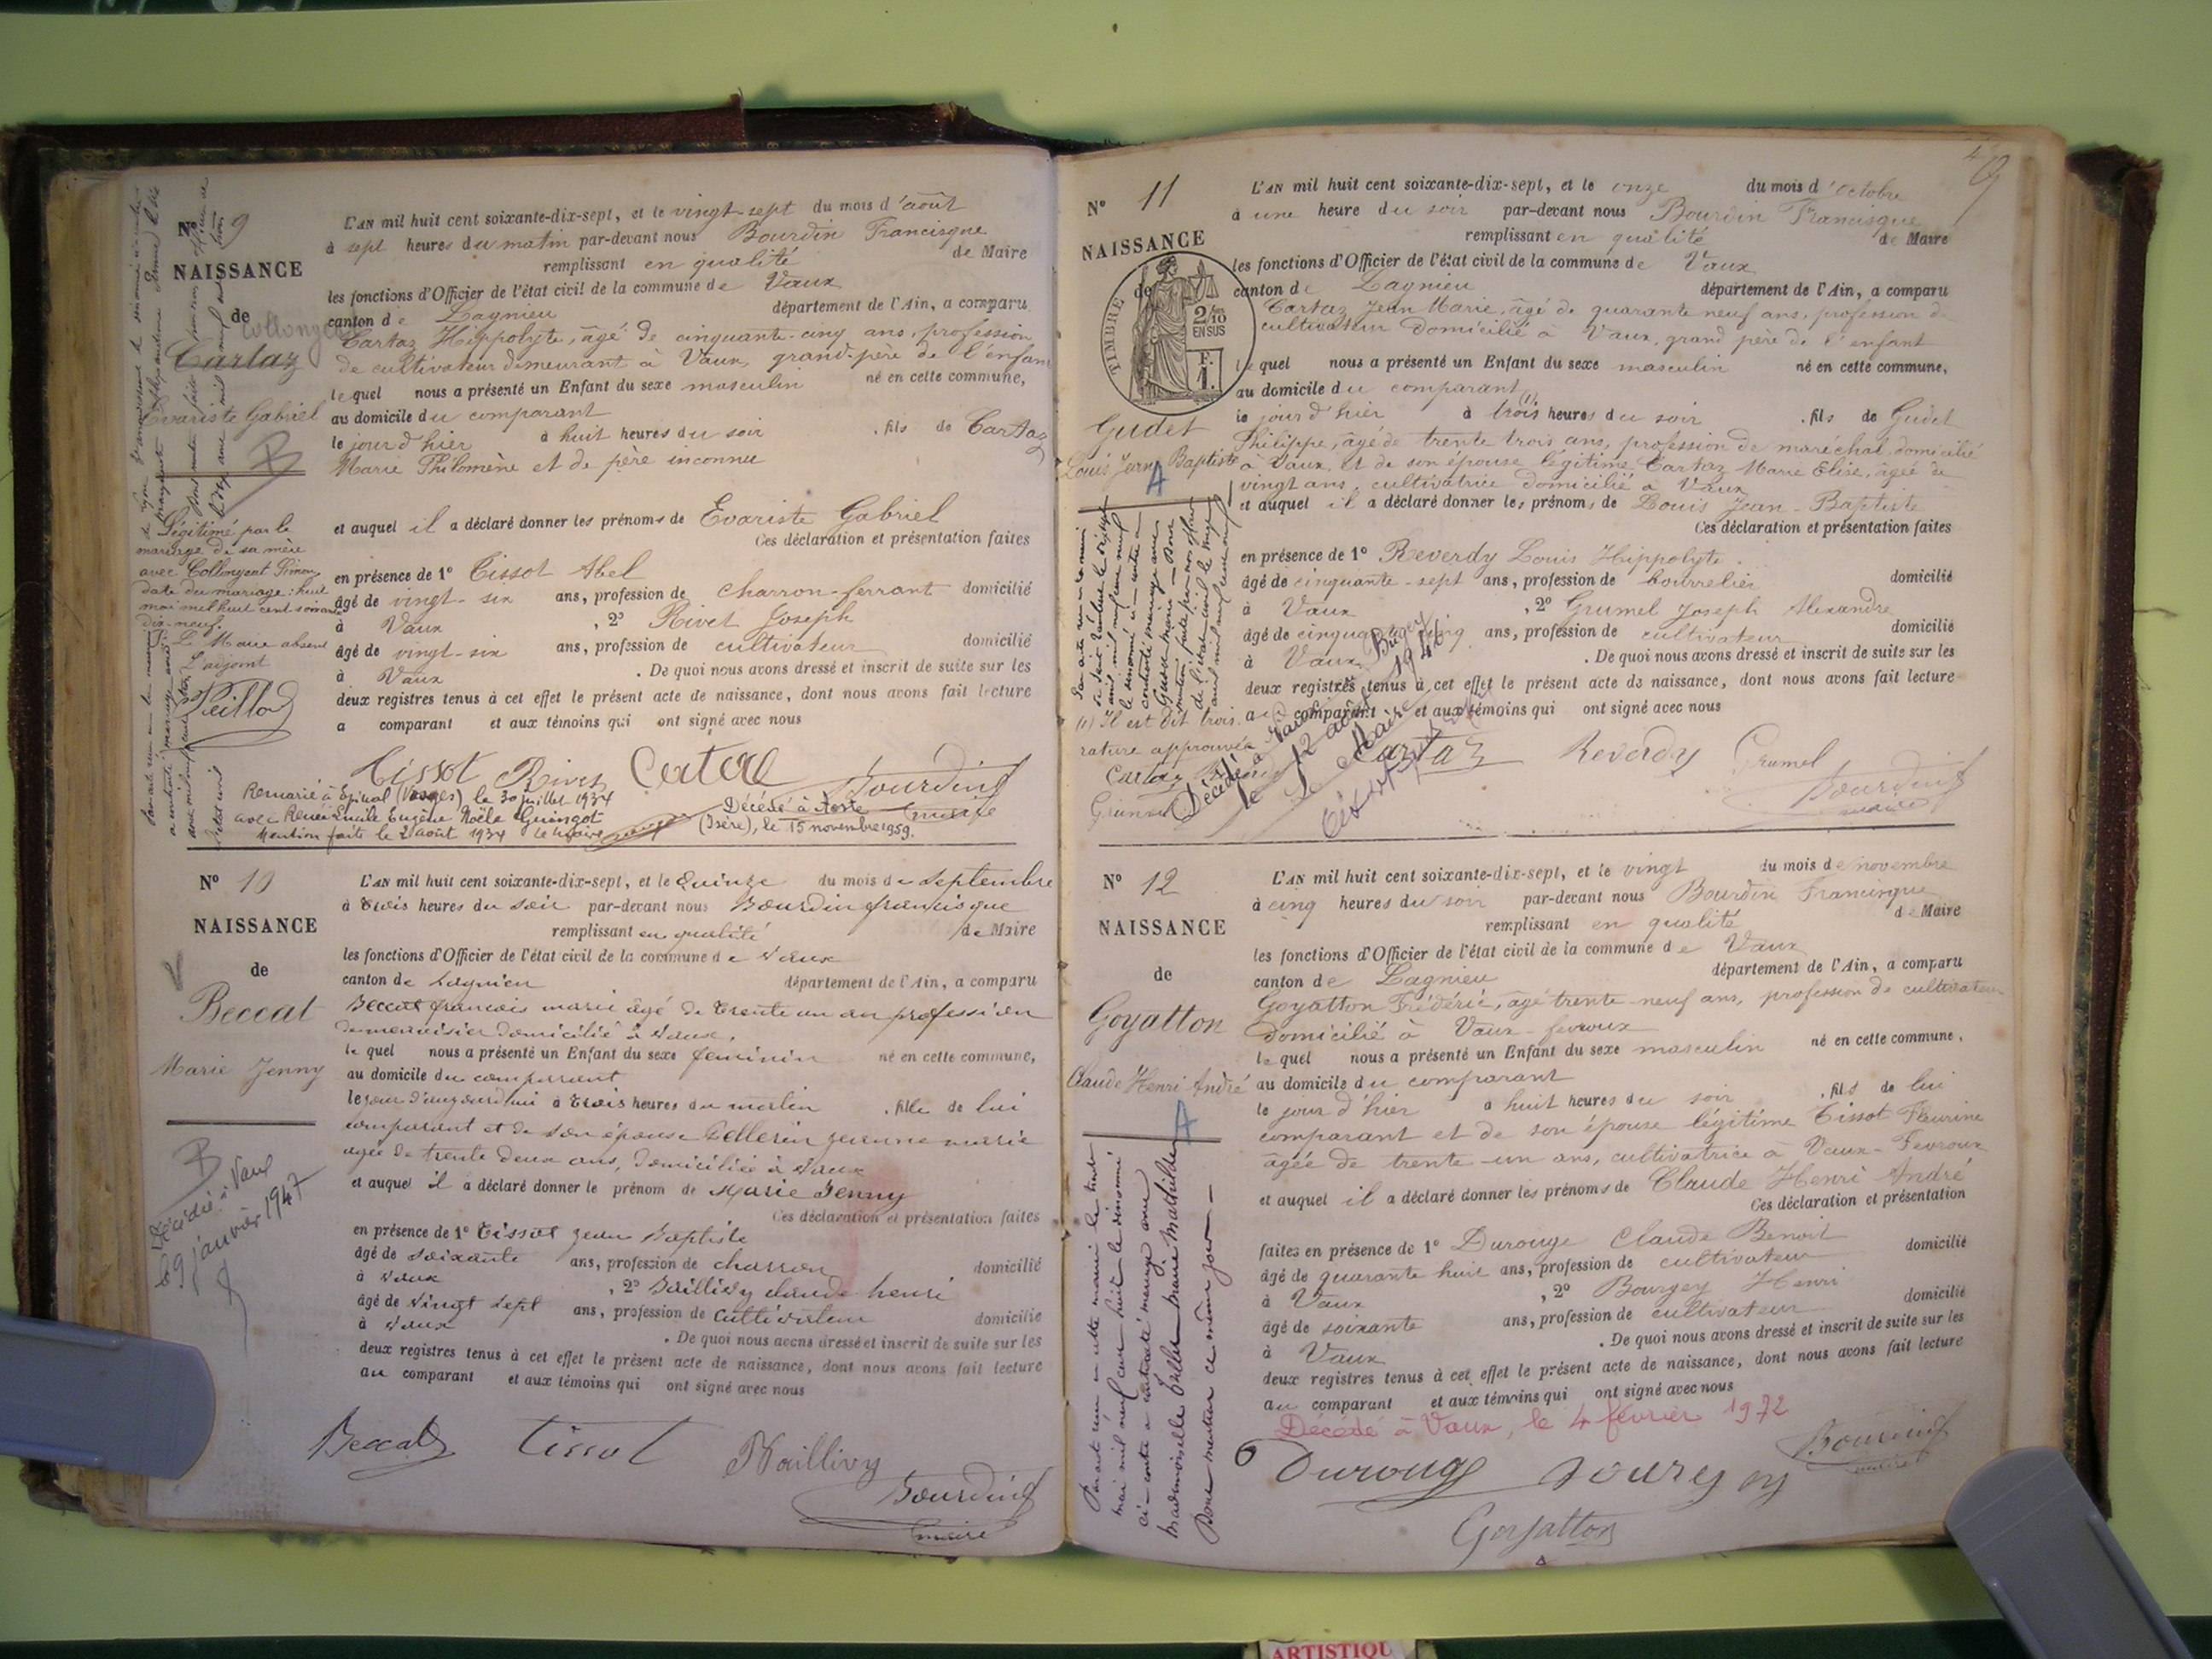 N° 9
NAISSANCE
de
Collonge
Cartaz
Evariste Gabriel
B
Légitimé par le
mariage de sa mère
avec Collongeat Simon
date du mariage : huit
mai mil huit cent soixante
dix-neuf.
Le Maire absent
L'adjoint
Peillod
L'AN mil huit cent soixante-dix-sept, et le vingt-sept du mois d'août
à sept heures du matin par-devant nous Bourdin Francisque
remplissant en qualité de Maire
les fonctions d'Officier de l'état civil de la commune de Vaux
canton de Lagnieu département de l'Ain, a comparu
Cartaz Hippolyte, âgé de cinquante-cinq ans, profession
de cultivateur demeurant à Vaux, grand-père de l'enfant
lequel nous a présenté un Enfant du sexe masculin né en cette commune,
au domicile du comparant
le jour d'hier à huit heures du soir , fils de Cartaz
Marie Philomène et de père inconnu
et auquel il a déclaré donner les prénoms de Evariste Gabriel
Ces déclaration et présentation faites
en présence de 1° Tissot Abel
âgé de vingt-six ans, profession de charron-ferrant domicilié
à Vaux , 2° Rivet Joseph
âgé de vingt-six ans, profession de cultivateur domicilié
à Vaux . De quoi nous avons dressé et inscrit de suite sur les
deux registres tenus à cet effet le présent acte de naissance, dont nous avons fait lecture
a comparant et aux témoins qui ont signé avec nous
Tissot Rivet Bourdin
maire
Remarié à Epinal (Vosges) le 30 juillet 1934
avec Renée Lucile Eugénie Noële Guingot
Mention faite le 2 août 1934 Le Maire
Décédé à Aoste
(Isère), le 15 novembre 1959.
N° 10
NAISSANCE
de
Beccat
Marie Jenny
B
Décédée à Vaux
le 9 janvier 1947
L'AN mil huit cent soixante-dix-sept, et le Quinze du mois de septembre
à trois heures du soir par-devant nous Bourdin francisque
remplissant en qualité de Maire
les fonctions d'Officier de l'état civil de la commune de Vaux
canton de Lagnieu département de l'Ain, a comparu
Beccat francois marie âgé de trente un an profession
de menuisier domicilié à Vaux,
lequel nous a présenté un Enfant du sexe feminin né en cette commune,
au domicile du comparant
le jour d'aujourd'hui à trois heures du matin , fille de lui
comparant et de son épouse Pellerin jeanne marie
agée de trente deux ans, domiciliée à Vaux
et auquel il a déclaré donner le prénom de Marie Jenny
Ces déclaration et présentation faites
en présence de 1° Tissot jean Baptiste
âgé de soixante ans, profession de charron domicilié
à Vaux , 2° Baillivy claude henri
âgé de vingt sept ans, profession de cultivateur domicilié
à Vaux . De quoi nous avons dressé et inscrit de suite sur les
deux registres tenus à cet effet le présent acte de naissance, dont nous avons fait lecture
au comparant et aux témoins qui ont signé avec nous
Beccat Tissot Baillivy
Bourdin
maire
N° 11
NAISSANCE
de
TIMBRE
2/10
EN SUS
F.
1.
Gudet
Louis Jean Baptiste
A
(1) Il est dit trois.
rature approuvée
Cartaz
L'AN mil huit cent soixante-dix-sept, et le onze du mois d'octobre
à une heure du soir par-devant nous Bourdin Francisque
remplissant en qualité de Maire
les fonctions d'Officier de l'état civil de la commune de Vaux
canton de Lagnieu département de l'Ain, a comparu
Cartaz Jean Marie, âgé de quarante neuf ans, profession de
cultivateur domicilié à Vaux, grand père de l'enfant
lequel nous a présenté un Enfant du sexe masculin né en cette commune,
au domicile du comparant
le jour d'hier à trois (1) heures du soir , fils de Gudet
Philippe, âgé de trente trois ans, profession de maréchal domicilié
à Vaux, et de son épouse légitime Cartaz Marie Elise, âgée de
vingt ans, cultivatrice domicilié à Vaux
et auquel il a déclaré donner les prénoms de Louis Jean-Baptiste
Ces déclaration et présentation faites
en présence de 1° Reverdy Louis Hippolyte
âgé de cinquante-sept ans, profession de bourrelier domicilié
à Vaux , 2° Grumel Joseph Alexandre
âgé de cinquante cinq ans, profession de cultivateur domicilié
à Vaux . De quoi nous avons dressé et inscrit de suite sur les
deux registres tenus à cet effet le présent acte de naissance, dont nous avons fait lecture
au comparant et aux témoins qui ont signé avec nous
Cartaz Reverdy Grumel
Bourdin
maire
N° 12
NAISSANCE
de
Goyatton
Claude Henri André
A
Par acte reçu en cette mairie le trente
mai mil neuf cent huit le dénommé
ci-contre a contracté mariage avec
Mademoiselle Marie Mathilde
Dont mention ce même jour
L'AN mil huit cent soixante-dix-sept, et le vingt du mois de novembre
à cinq heures du soir par-devant nous Bourdin Francisque
remplissant en qualité de Maire
les fonctions d'Officier de l'état civil de la commune de Vaux
canton de Lagnieu département de l'Ain, a comparu
Goyatton Frédéric, âgé trente-neuf ans, profession de cultivateur
domicilié à Vaux-fevroux
lequel nous a présenté un Enfant du sexe masculin né en cette commune,
au domicile du comparant
le jour d'hier à huit heures du soir , fils de lui
comparant et de son épouse légitime Tissot Fleurine
âgée de trente-un ans, cultivatrice à Vaux-Fevroux
et auquel il a déclaré donner les prénoms de Claude Henri André
Ces déclaration et présentation
faites en présence de 1° Durouge Claude Benoit
âgé de quarante huit ans, profession de cultivateur domicilié
à Vaux , 2° Bourgey Henri
âgé de soixante ans, profession de cultivateur domicilié
à Vaux . De quoi nous avons dressé et inscrit de suite sur les
deux registres tenus à cet effet le présent acte de naissance, dont nous avons fait lecture
au comparant et aux témoins qui ont signé avec nous
Décédé à Vaux, le 4 février 1972
Durouge Bourgey Bourdin
maire
Goyatton
ARTISTIQU